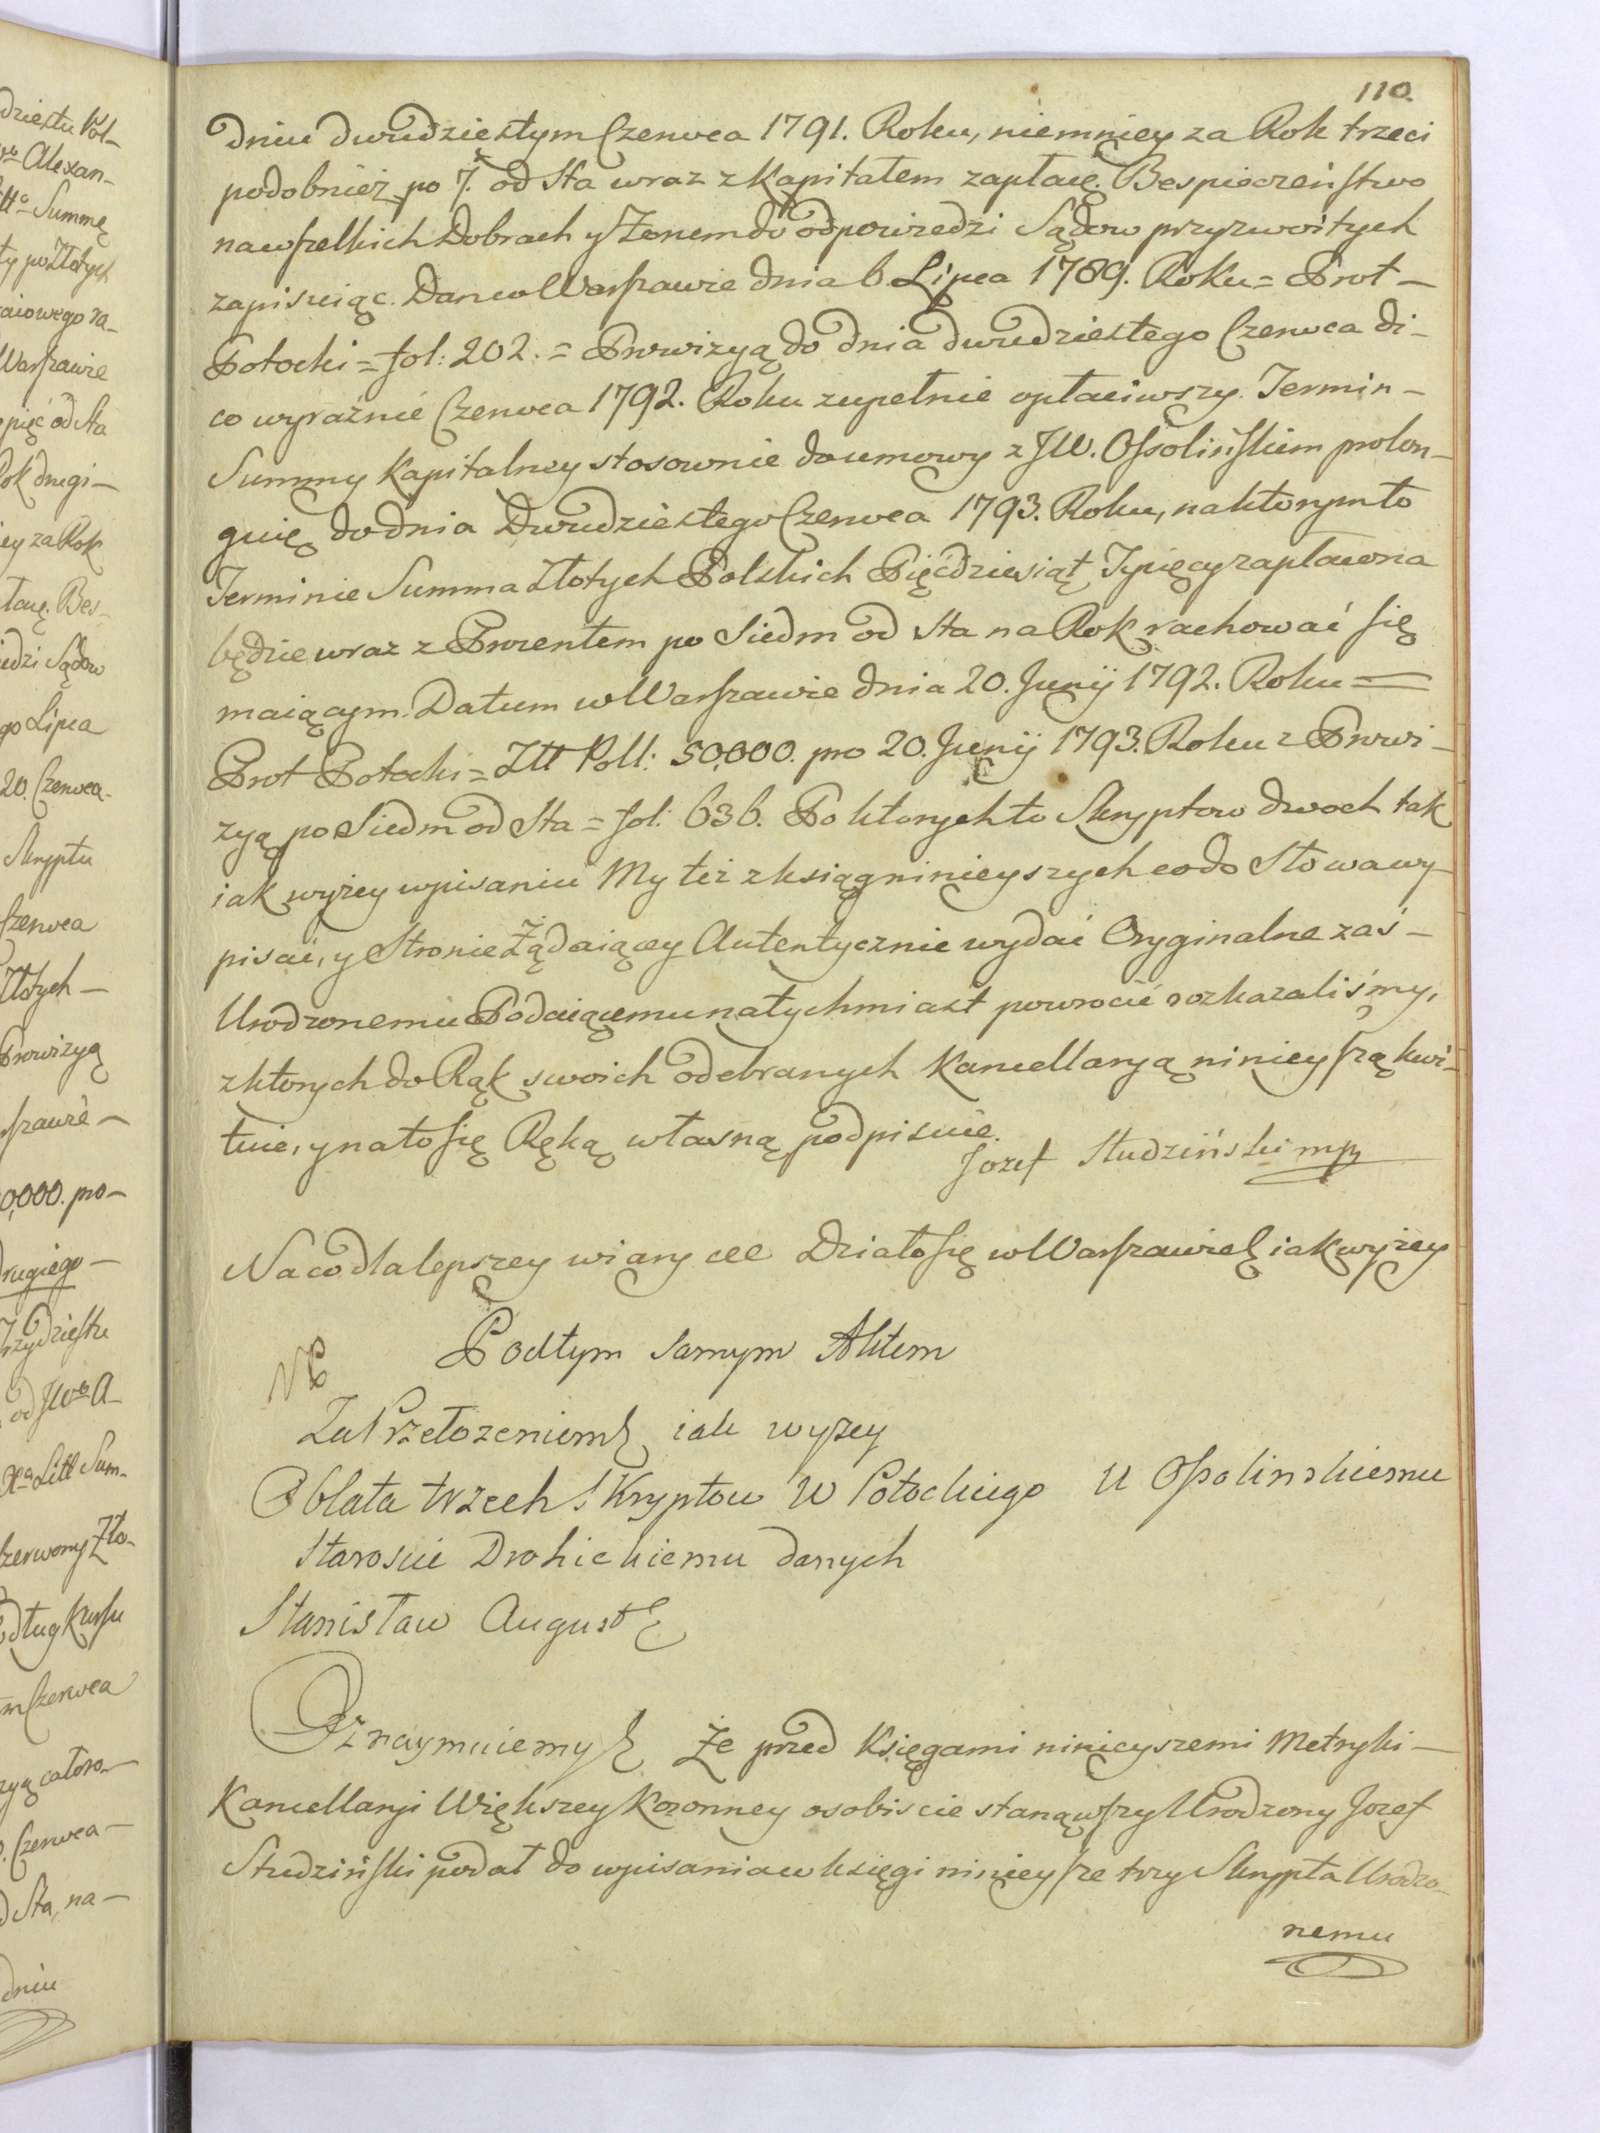 110.
dniu dwudziestym Czerwca 1791. Roku, niemniey za Rok trzeci
podobnież po 7. od Sta wraz z Kapitałem zapłacę. Bespieczeństwo
na wszelkich Dobrach y Zonem do odpowiedzi Sądow przyzwoitych
zapisuiąc. Dan w Warszawie dnia 6 Lipca 1789. Roku = Prot –
Potocki = fol: 202. = Prowizyą do dnia dwudziestego Czerwca di-
co wyraźnie Czerwca 1792. Roku zupełnie opłaciwszy. Termin –
Summy Kapitalney stosownie do umowy z JW. Ossolińskiem prolon-
guię do dnia Dwudziestego Czerwca 1793. Roku, na ktorym to
Terminie Summa Złotych Polskich Pięcdziesiąt Tysięcy zapłacona
będzie wraz z Procentem po Siedm od Sta na Rok rachować się
maiącym. Datum w Warszawie dnia 20. Junij 1792. Roku =
Prot Potocki = Złł Poll: 50,000. pro 20. Junij 1793. Roku z Prowi-
zyą po Siedm od Sta = fol: 636. Po ktorych to Skryptow dwoch tak
iak wyżey wpisaniu My też z ksiąg ninieyszych co do Słowa wy-
pisać, y Stronie Żądaiącey Autentycznie wydać Oryginalne zaś –
Urodzonemu Podaiącemu natychmiast powrocić rozkazaliśmy,
z ktorych do Rąk swoich odebranych Kancellaryą ninieyszą kwi-
tuie, y na to się Ręką własną podpisuie.
Jozef Studziński mp
Na co dla lepszey wiary etc Działo się w Warszawie iak wyżey
Pod tym samym Aktem
Za Przełożeniem iak wyżey
Oblata trzech Skryptow W Potockiego U Ossolinskiemu
Staroscie Drohickiemu danych
Stanisław August
Oznaymuiemy Że przed Księgami ninieyszemi Metryki –
Kancellaryi Większey Koronney osobiscie stanąwszy Urodzony Jozef
Studziński podał do wpisania w księgi ninieysze trzy Skrypta Urodzo-
nemu
dziestu Pol-
Alexan-
Summę
ty po Złotych
Warszawie
pięć od Sta
Rok drugi –
ey za Rok
łacę. Bes-
iedzi Sądow
go Lipca
20. Czerwca
Skryptu
Czerwca
Złotych –
Prowizyą
rszawie –
0,000. pro –
drugiego –
rzydziestu
od JWo A-
Litt Sum-
Czerwony Zło-
dług Kursu
m Czerwca
zyą cotoro-
Czerwca –
d Sta, na –
dniu